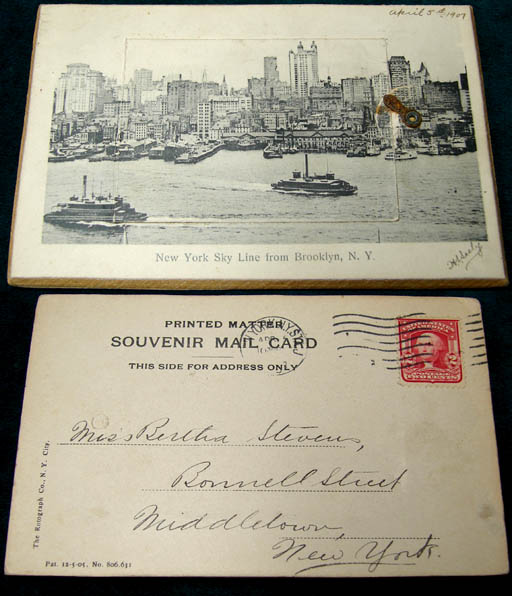 April 5th 1907
New York Sky Line from Brooklyn, N. Y.
PRINTED MATTER
SOUVENIR MAIL CARD
THIS SIDE FOR ADDRESS ONLY
UNITED STATES
OF AMERICA
2
POSTAGE
TWO CENTS
Miss Bertha Stevens,
Bonnell Street
Middletown,
New York.
The Rotograph Co., N. Y. City.
Pat. 12-5-05, No. 806,631